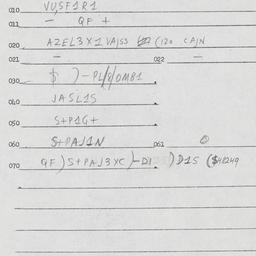 010 VUSF1R1
011 — QF +
020 AZEL3X1 VA1S3 (120 CA)N
021 — 022 —
030 $ ) - PL/8/0MB1
040 JASL1S
050 S+P1G+
060 S+PAJ1N 061
070 QF) S+PAJ3XC )-D1 ) D1S ($48249